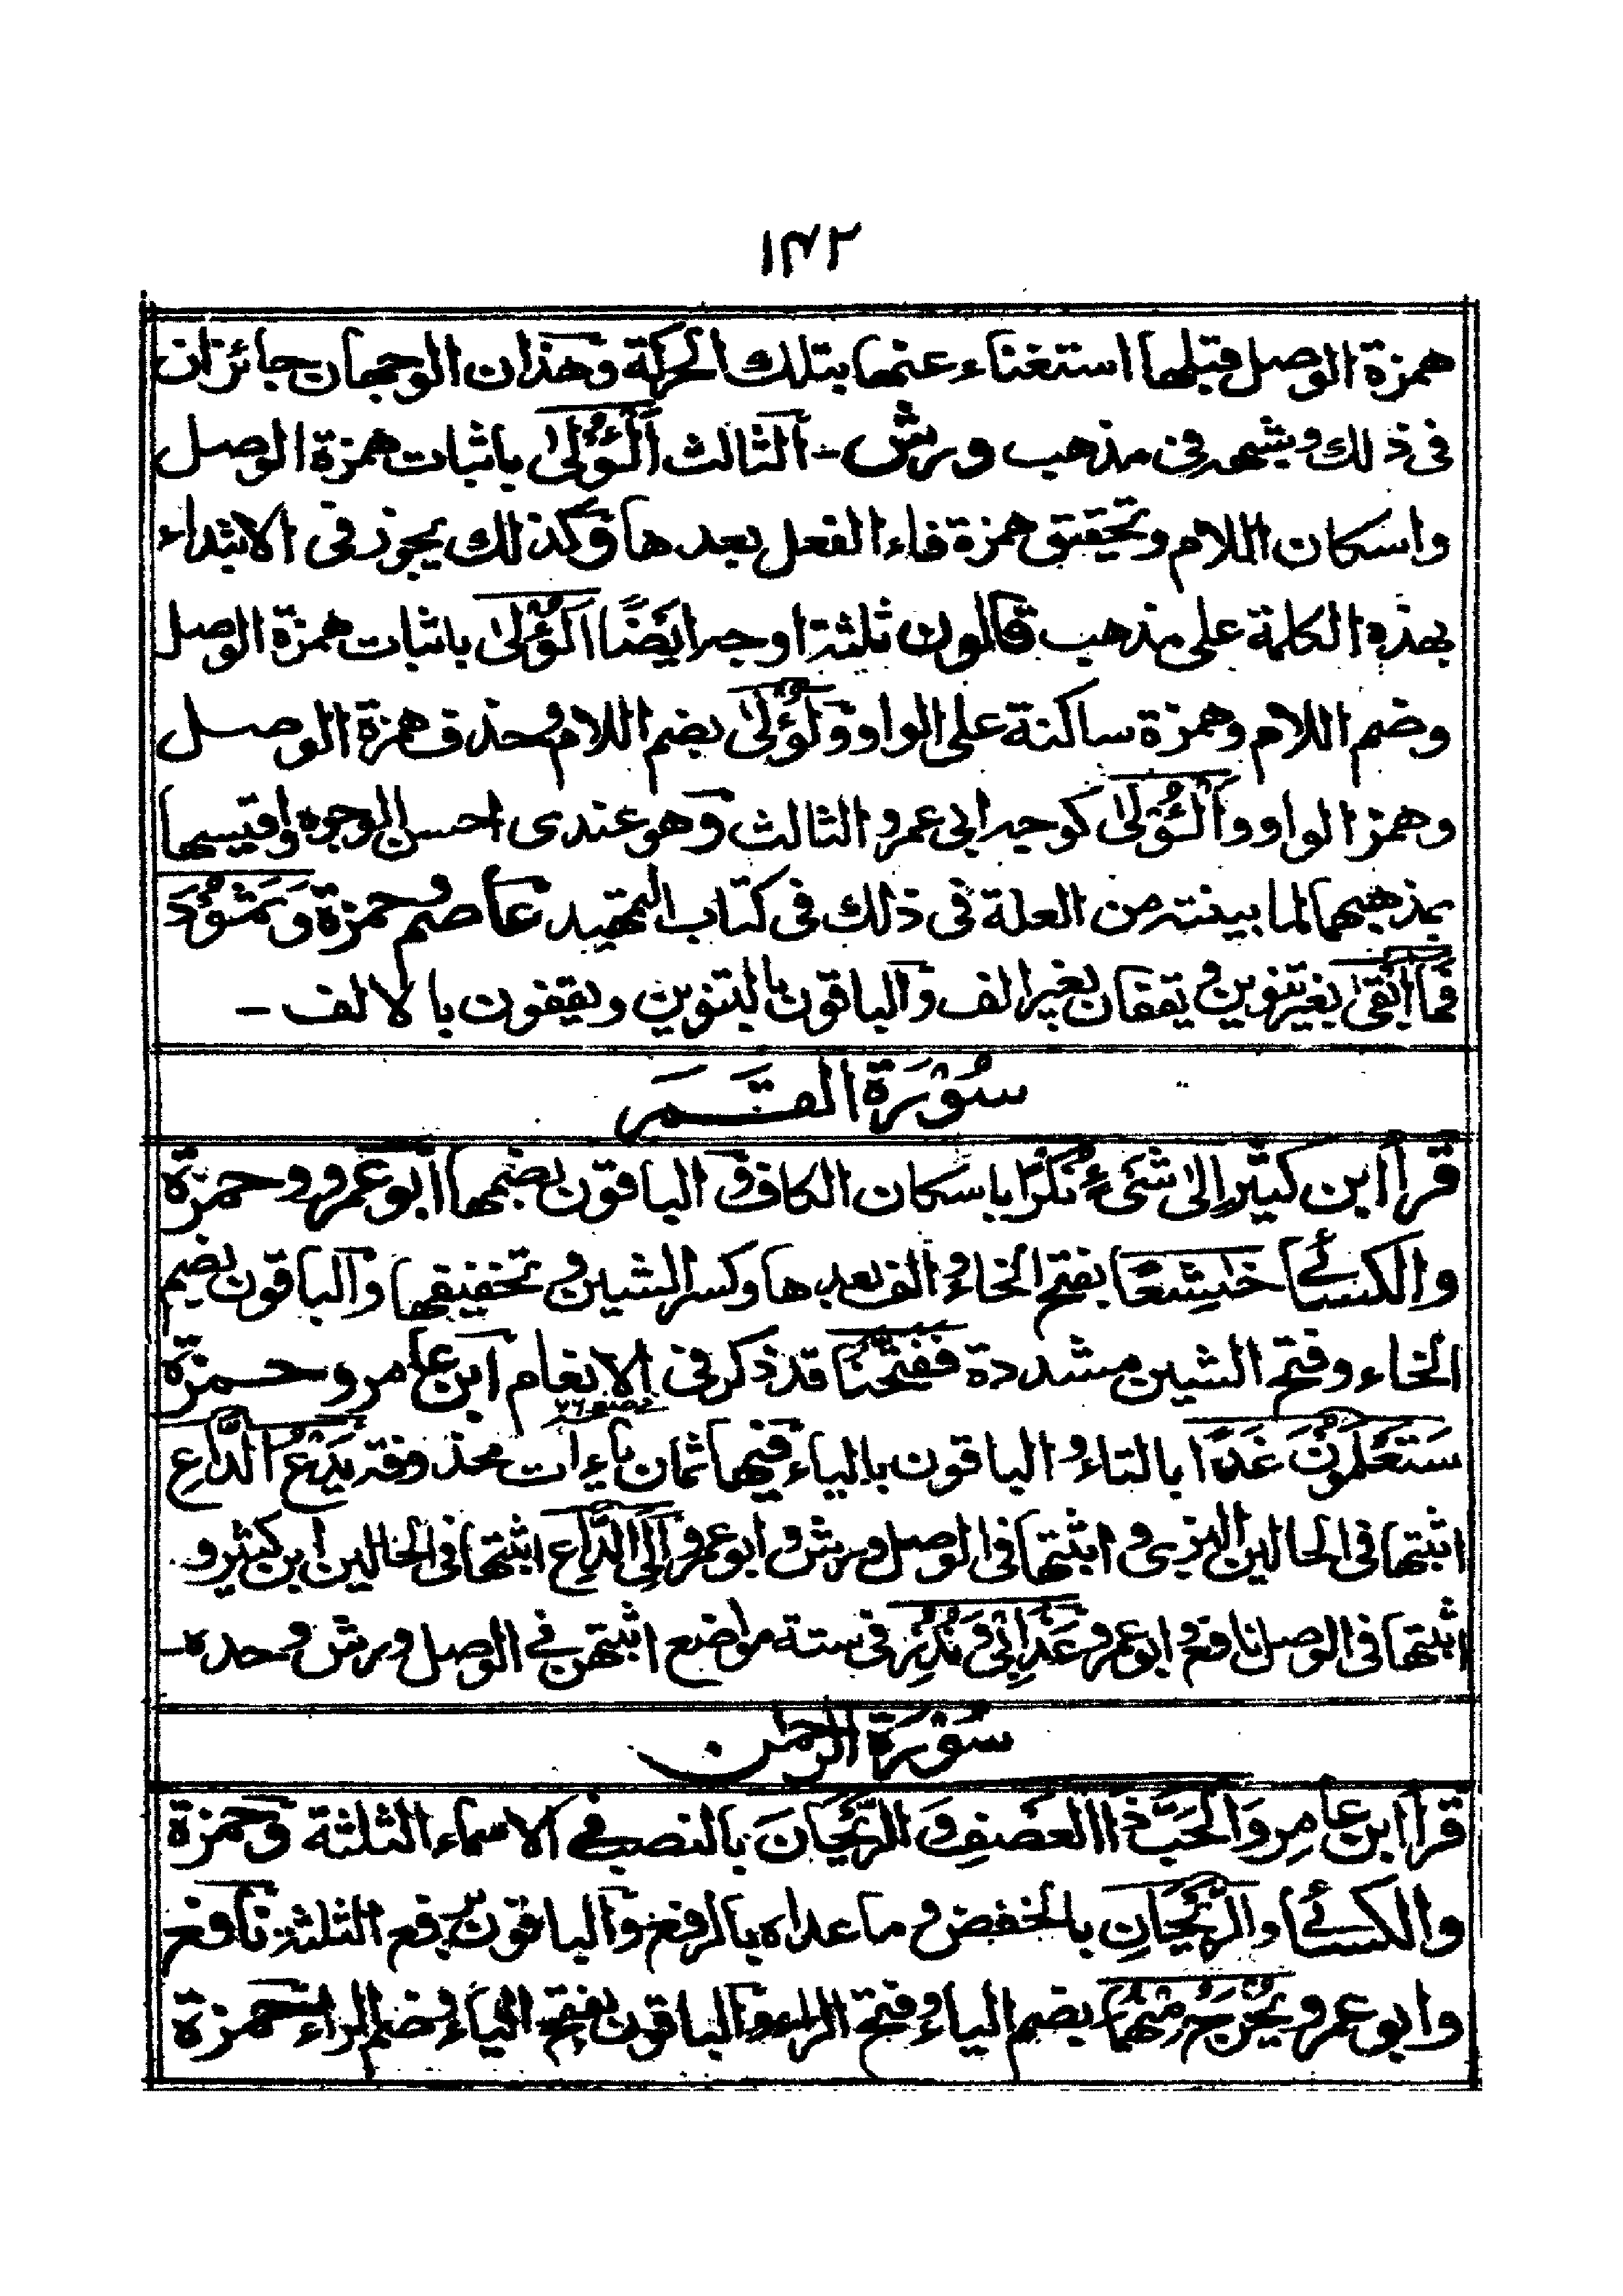 ١٤٢
همزة الوصل قبلها استغناء عنها بتلك الحركة وهذان الوجهان جائزان
فى ذلك وشبهه فى مذهب ورش - الثالث اَلْؤُلىٰ باثبات همزة الوصل
واسكان اللام وتحقيق همزة فاء الفعل بعدها وكذلك يجوز فى الابتداء
بهذه الكلمة على مذهب قالون ثلثة اوجه ايضًا اَلُؤْلىٰ باثبات همزة الوصل
وضم اللام وهمزة ساكنة على الواو ولُؤْلىٰ بضم اللام وحذف همزة الوصل
وهمز الواو واَلْؤُلىٰ كوجه ابى عمرو الثالث وهو عندى احسن الوجوه واقيسها
بمذهبهما لما بينته من العلة فى ذلك فى كتاب التمهيد عاصم وحمزة وَثَمُوْدَ
فَمَا اَبْقىٰ بغير تنوين ويقفان بغير الف والباقون بالتنوين ويقفون بالالف -
سُوْرَة القَمَر
قرأ ابن كثير اِلىٰ شَىْءٍ نُكْرٍ باسكان الكاف والباقون بضمها ابو عمرو وحمزة
والكسائے خٰشِعًا بفتح الخاء والف بعدها وكسر الشين وتخفيفها والباقون بضم
الخاء وفتح الشين مشددة فَفَتَحْنَا قد ذكر فى الانعام ابن عامر وحمزة
سَتَعْلَمُوْنَ غَدًا بالتاء والباقون بالياء فيها ثمان ياءات محذوفة يَدْعُ الدَّاعِ
اثبتها فى الحالين البزى واثبتها فى الوصل ورش وابو عمرو اِلَى الدَّاعِ اثبتها فى الحالين ابن كثير و
اثبتها فى الوصل نافع وابو عمرو عَذَابِىْ وَنُذُرِ فى ستة مواضع اثبتهن فے الوصل ورش وحده -
سُوْرَة الرحمٰن
قرأ ابن عامر وَالْحَبَّ ذَا الْعَصْفِ وَالرَّيْحَانَ بالنصب فے الاسماء الثلثة وحمزة
والكسائے وَالرَّيْحَانِ بالخفض وما عداه بالرفع والباقون برفع الثلثة نافع
وابو عمرو يُخْرَجُ مِنْهُمَا بضم الياء وفتح الراء والباقون بفتح الياء وضم الراء حمزة